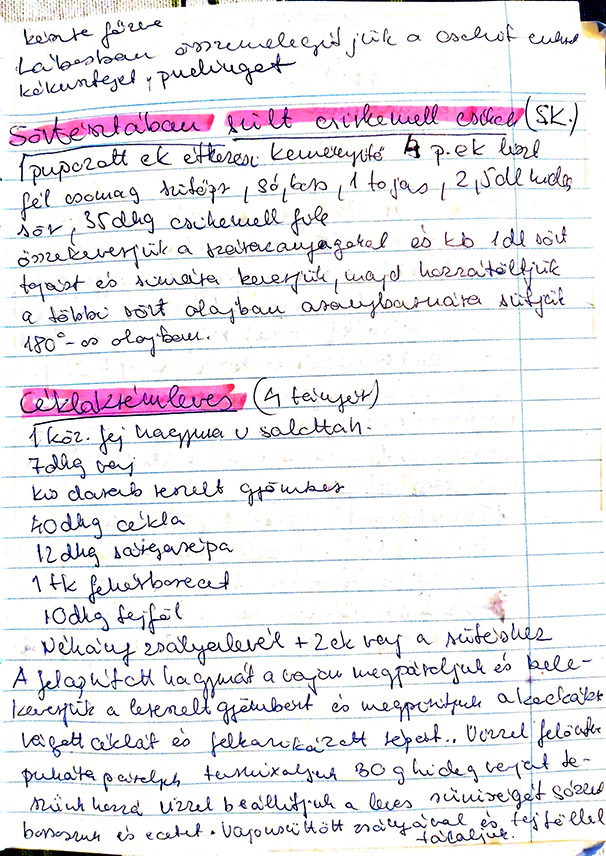 készre főzve
Lábasban összemelegítjük a csokit cukrot
kókusztejet, pudingot
Sörtésztában sült csirkemell csíkok (SK.)
1 púpozott ek étkezési keményítő 4 p. ek liszt
fél csomag sütőpor, só, bors, 1 tojás, 2,5dl hideg
sör, 35dkg csirkemell filé
összekeverjük a száraz anyagokat és kb 1dl sört
tojást és simára keverjük, majd hozzátöltjük
a többi sört olajban aranybarnára sütjük
180°-os olajban.
Céklakrémleves (4 tányér)
1 köz. fej hagyma v salottah.
7dkg vaj
kis darab reszelt gyömbér
40dkg cékla
12dkg sárgarépa
1 tk fehérborecet
10dkg tejföl
Néhány zsályalevél + 2ek vaj a sütéshez
A felaprított hagymát a vajon megpároljuk és bele-
keverjük a lereszelt gyömbért és megpirítjuk a kockákra
vágott céklát és felkarikázott répát.. Vízzel felöntve
puhára pároljuk turmixoljuk 30 g hideg vajat te-
szünk hozzá vízzel beállítjuk a leves sűrűségét sózzuk
borsozzuk és ecetet. Vajonsütött zsályával és tejföllel
tálaljuk.